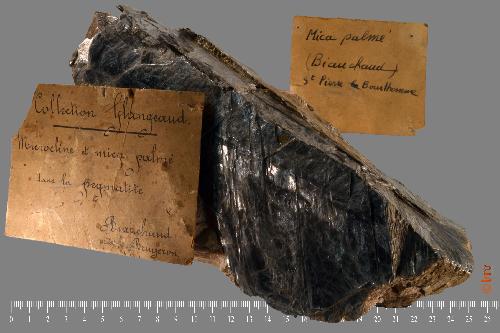 Collection Glangeaud
Microcline et mica palmé
dans la pegmatite
Bianchaud
Mica palmé
(Bianchaud)
St Pierre la Bourlhonne
0 1 2 3 4 5 6 7 8 9 10 11 12 13 14 15 16 17 18 19 20 21 22 23 24 25 26